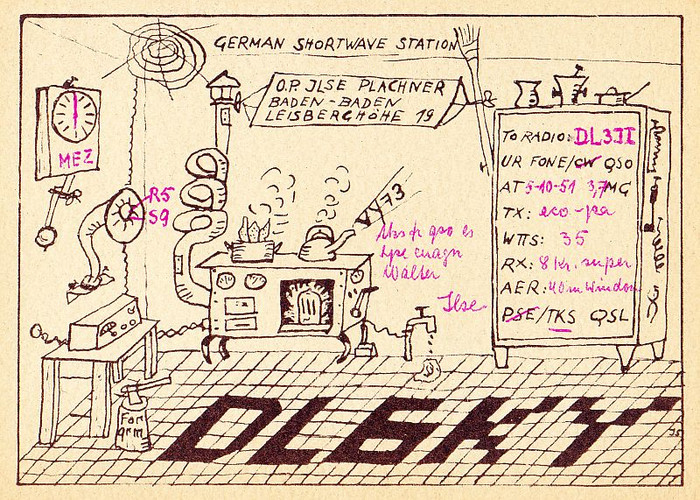 GERMAN SHORTWAVE STATION
O.P. ILSE PLACHNER
BADEN-BADEN
LEISBERGHÖHE 19
MEZ
R5
S9
VY 73
TO RADIO: DL3JI
UR FONE/CW QSO
AT 5-10-51 3,7MC
TX: eco-pa
WTTS: 35
RX: 8 Kr. super
AER: 40 m Windom
PSE/TKS QSL
qso es
Walter
Ilse
DL6KY